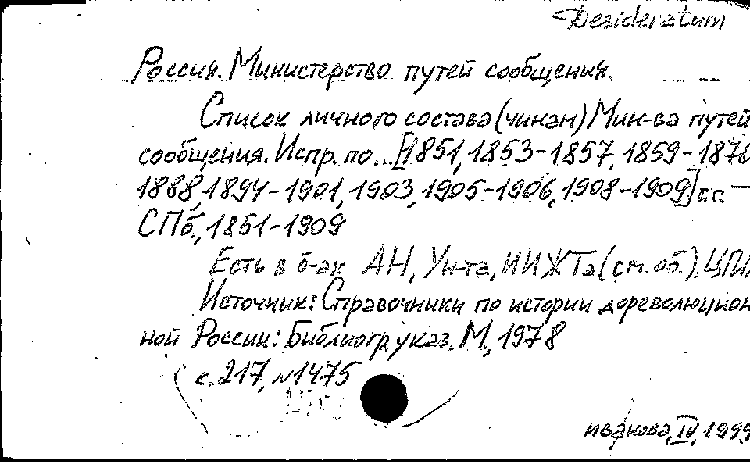 Desideratum
Россия. Министерство путей сообщения.
Список личного состава (чинам) Мин-ва путей
сообщения. Испр. по... [1851, 1853-1857, 1859-1876
1888, 1894-1901, 1903, 1905-1906, 1908-1909] гг. —
СПб., 1851-1909
Есть в б-ах АН, Ун-та, ИИЖТа (см. об.),
Источник: Справочники по истории дореволюцион
ной России: Библиогр. указ. М., 1978
с. 217, №1475
Иванова, IV, 1999